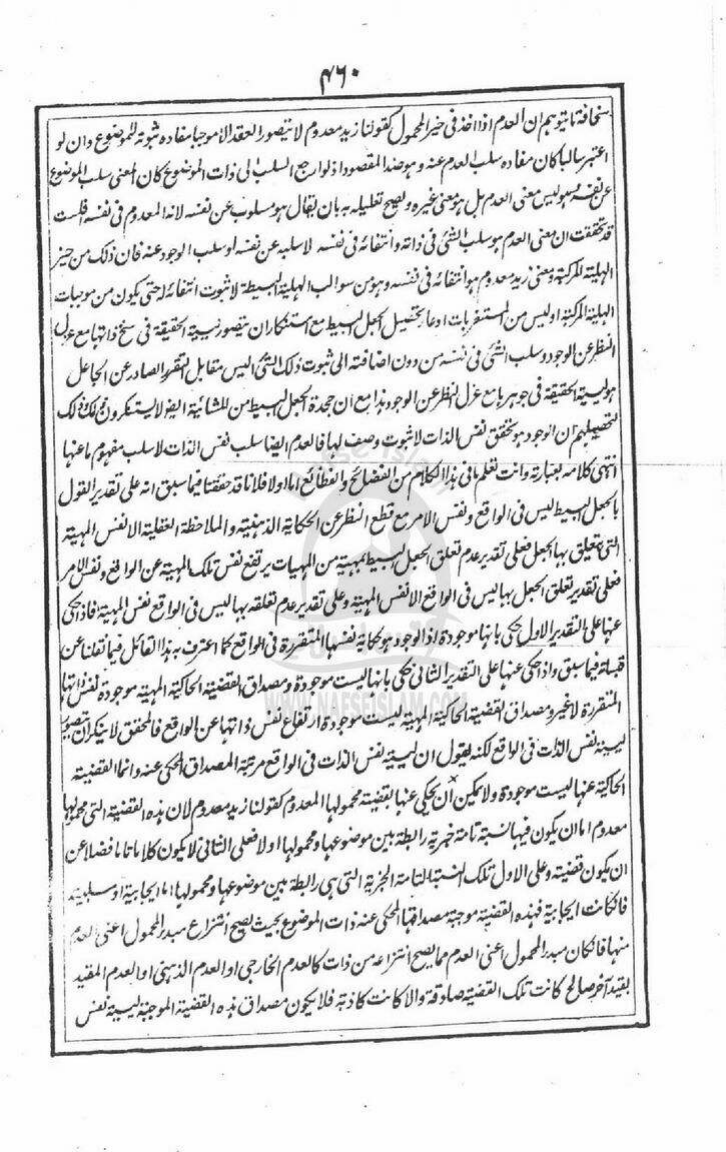 ٤٦٠
سخافة ما يتوهم ان العدم اذا اخذ فى حيز المحمول كقولنا زيد معدوم لا يتصور العقد الا موجبا مفاده ثبوته للموضوع وان لو
اعتبر سالبا كان مفاده سلب العدم عنه وهو ضد المقصود اذ لو ارجع السلب الى ذات الموضوع كان المعنى سلب الموضوع
عن نفسه وهو ليس معنى العدم بل هو معنى غيره ويصح تعليله به بان يقال هو مسلوب عن نفسه لانه المعدوم فى نفسه افلست
قد تحققت ان معنى العدم هو سلب الشئ فى ذاته وانتفائه فى نفسه لا سلبه عن نفسه او سلب الوجود عنه فان ذلك من حيز
الهلية المركبة ومعنى زيد معدوم هو انتفائه فى نفسه وهو من سوالب الهلية البسيطة لا ثبوت انتفائه له حتى يكون من موجبات
الهلية المركبة اوليس من المستغربات ادعا تحصيل الجعل البسيط مع استنكار ان يتصور ليسية الحقيقة فى سنخ ذاتها مع عزل
النظر عن الوجود وسلب الشئ فى نفسه من دون اضافته الى ثبوت ذلك الشئ اليس مقابل التقرر الصادر عن الجاعل
هو ليسية الحقيقة فى جوهرها مع عزل النظر عن الوجود هذا مع ان جحدة الجعل البسيط من المشائية ايضا لا يستنكرون ذلك وذلك
لتحصيلهم ان الوجود هو تحقق نفس الذات لا ثبوت وصف لها فالعدم ايضا سلب نفس الذات لا سلب مفهوم ما عنها
انتهى كلامه بعبارته وانت تعلم ما فى هذا الكلام من الفضائح والفظائع اما اولا فلانا قد حققنا فيما سبق انه على تقدير القول
بالجعل البسيط ليس فى الواقع ونفس الامر مع قطع النظر عن الحكاية الذهنية والملاحظة العقلية الا نفس المهية
التى يتعلق بها الجعل فعلى تقدير عدم تعلق الجعل البسيط بمهية من المهيات يرتفع نفس تلك المهية عن الواقع ونفس الامر
فعلى تقدير تعلق الجعل بها ليس فى الواقع الا نفس المهية وعلى تقدير عدم تعلقه بها ليس فى الواقع نفس المهية فاذا حكى
عنها على التقدير الاول حكى بانها موجودة اذ الوجود هو حكاية نفسها المتقررة فى الواقع كما اعترف به هذا القائل فيما نقلنا عن
قبساته فيما سبق واذا حكى عنها على التقدير الثانى حكى بانها ليست موجودة ومصداق القضية الحاكية المهية موجودة نفس ذاتها
المتقررة لا غير ومصداق القضية الحاكية المهية ليست موجودة ارتفاع نفس ذاتها عن الواقع فالمحقق لا ينكر ان يتصور
ليسية نفس الذات فى الواقع لكنه يقول ان ليسية نفس الذات فى الواقع مرتبة المصداق المحكى عنه وانما القضية
الحاكية عنها ليست موجودة ولا يمكن ان يحكى عنها بقضية محمولها المعدوم كقولنا زيد معدوم لان هذه القضية التى محمولها
معدوم اما ان يكون فيها نسبة تامة خبرية رابطة بين موضوعها ومحمولها او لا فعلى الثانى لا يكون كلاما تاما فضلا عن
ان يكون قضية وعلى الاول تلك النسبة التامة الخبرية التى هى رابطة بين موضوعها ومحمولها اما ايجابية او سلبية
فان كانت ايجابية فهذه القضية موجبة مصداقها المحكى عنه ذات الموضوع بحيث يصح انتزاع مبدء المحمول اعنى العدم
منها فان كان مبدء المحمول اعنى العدم مما يصح انتزاعه من ذات كالعدم الخارجى او العدم الذهنى او العدم المقيد
بقيد آخر صالح كانت تلك القضية صادقة والا كانت كاذبة فلا يكون مصداق هذه القضية الموجبة ليسية نفس
WWW.NAFSEISLAM.COM